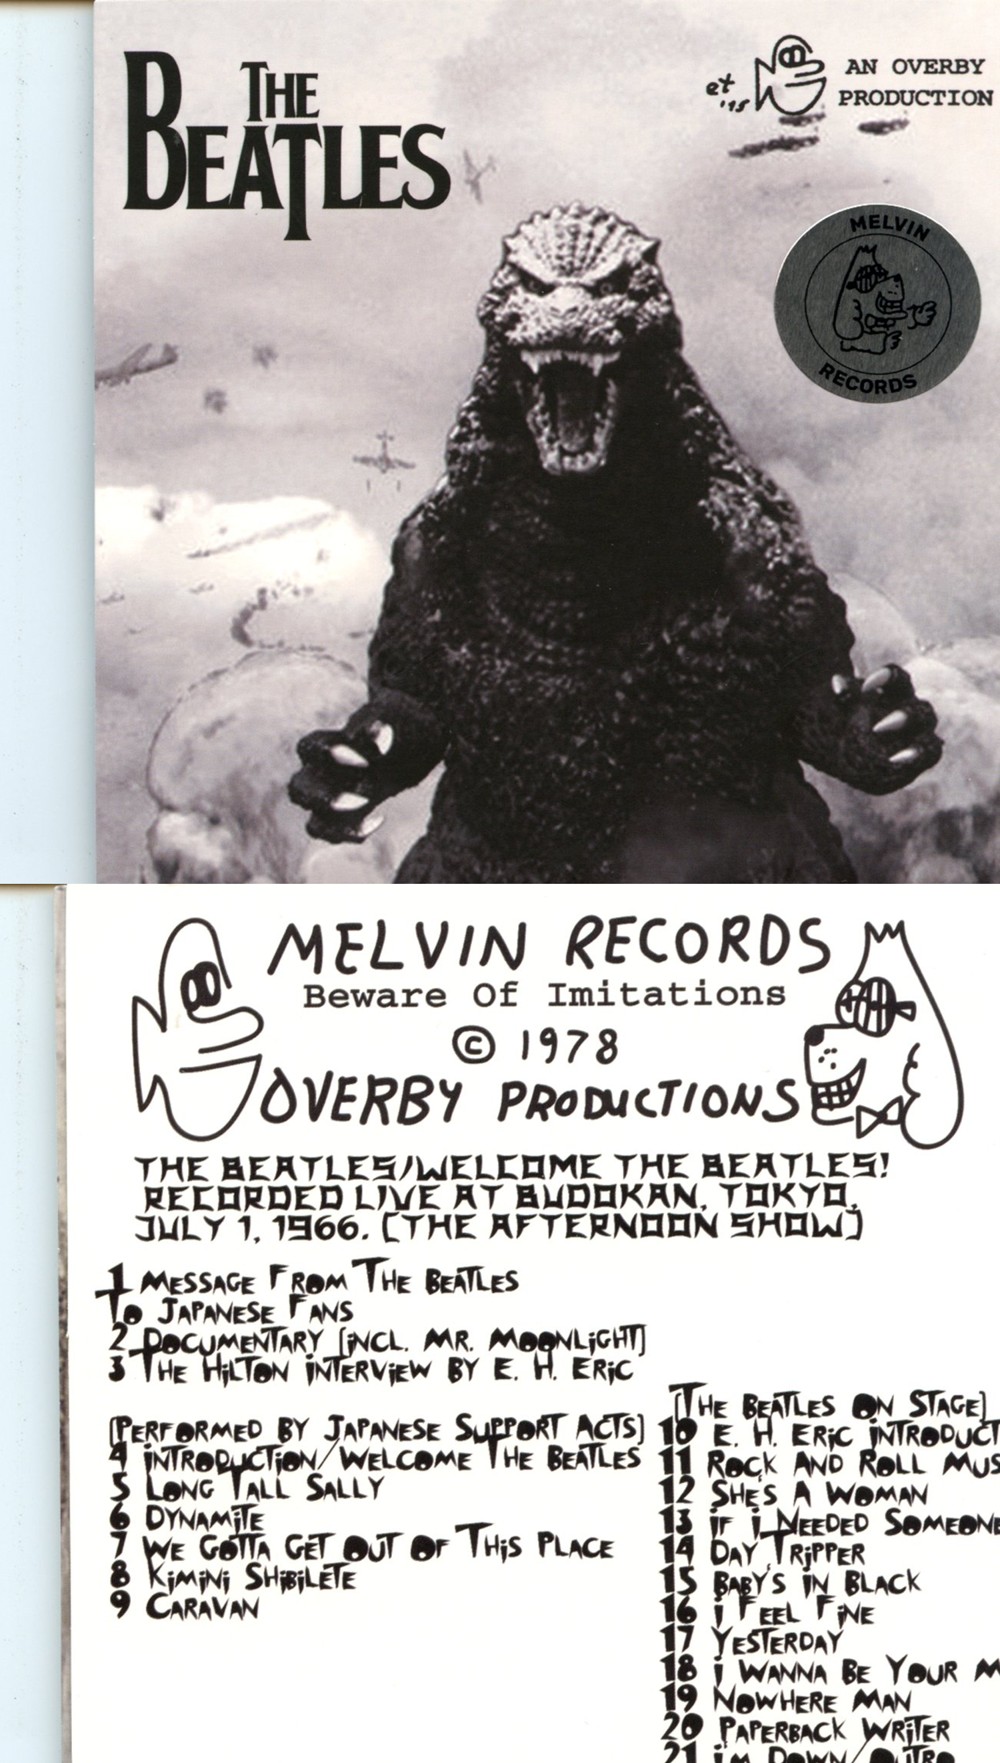 THE
BEATLES
et '75
AN OVERBY
PRODUCTION
MELVIN
RECORDS
MELVIN RECORDS
Beware Of Imitations
© 1978
OVERBY PRODUCTIONS
THE BEATLES/WELCOME THE BEATLES!
RECORDED LIVE AT BUDOKAN, TOKYO,
JULY 1, 1966. (THE AFTERNOON SHOW)
1 MESSAGE FROM THE BEATLES
TO JAPANESE FANS
2 DOCUMENTARY (INCL. MR. MOONLIGHT)
3 THE HILTON INTERVIEW BY E. H. ERIC
(PERFORMED BY JAPANESE SUPPORT ACTS)
4 INTRODUCTION/WELCOME THE BEATLES
5 LONG TALL SALLY
6 DYNAMITE
7 WE GOTTA GET OUT OF THIS PLACE
8 KIMINI SHIBILETE
9 CARAVAN
(THE BEATLES ON STAGE)
10 E. H. ERIC INTRODUCT
11 ROCK AND ROLL MUS
12 SHE'S A WOMAN
13 IF I NEEDED SOMEONE
14 DAY TRIPPER
15 BABY'S IN BLACK
16 I FEEL FINE
17 YESTERDAY
18 I WANNA BE YOUR M
19 NOWHERE MAN
20 PAPERBACK WRITER
21 I'M DOWN/OUTRO